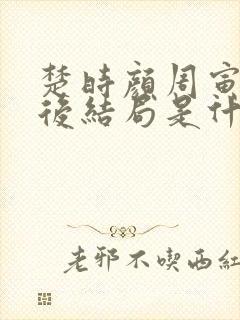 楚時顏周寅
後結局是什
老邪不喫西紅